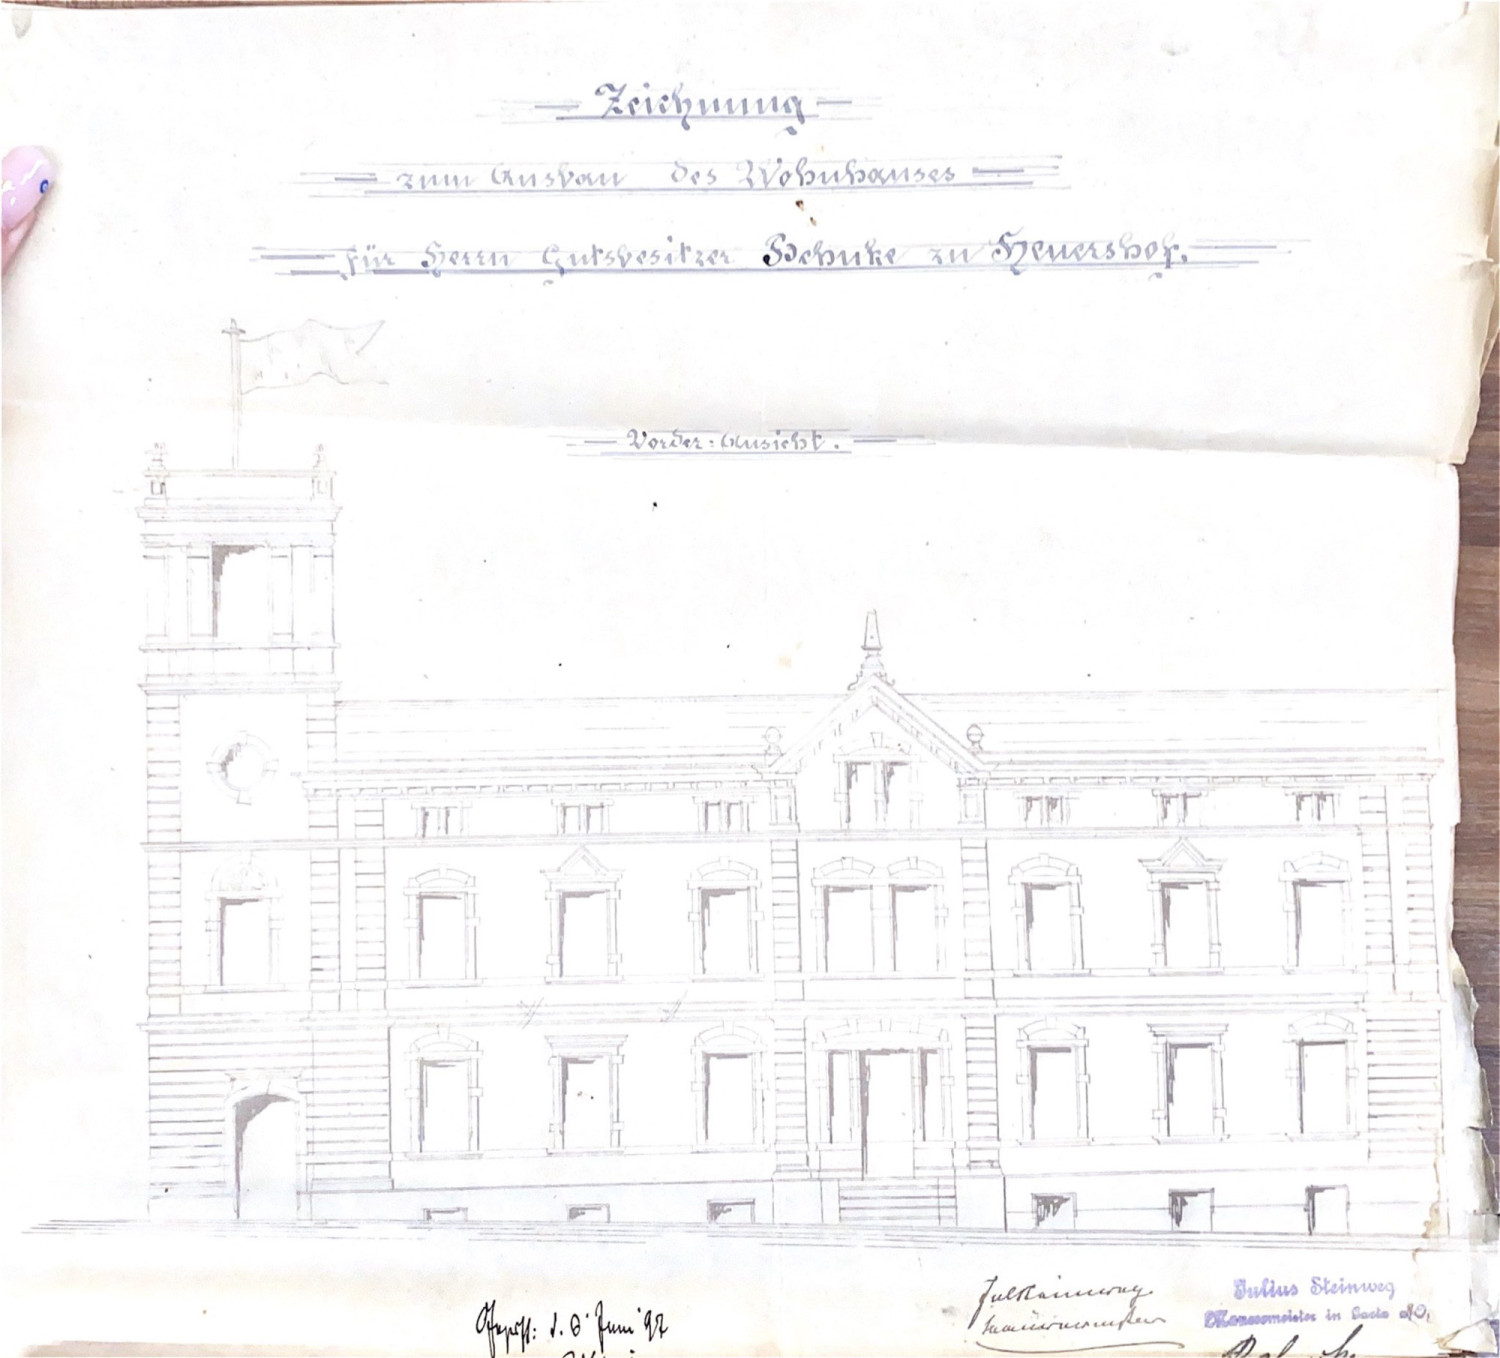 Zeichnung
zum Ausbau des Wohnhauses
für Herrn Gutsbesitzer Behnke zu Heuershof.
Vorder=Ansicht.
Jul Steinweg
Maurermeister
Julius Steinweg
Maurermeister in
Juni 97